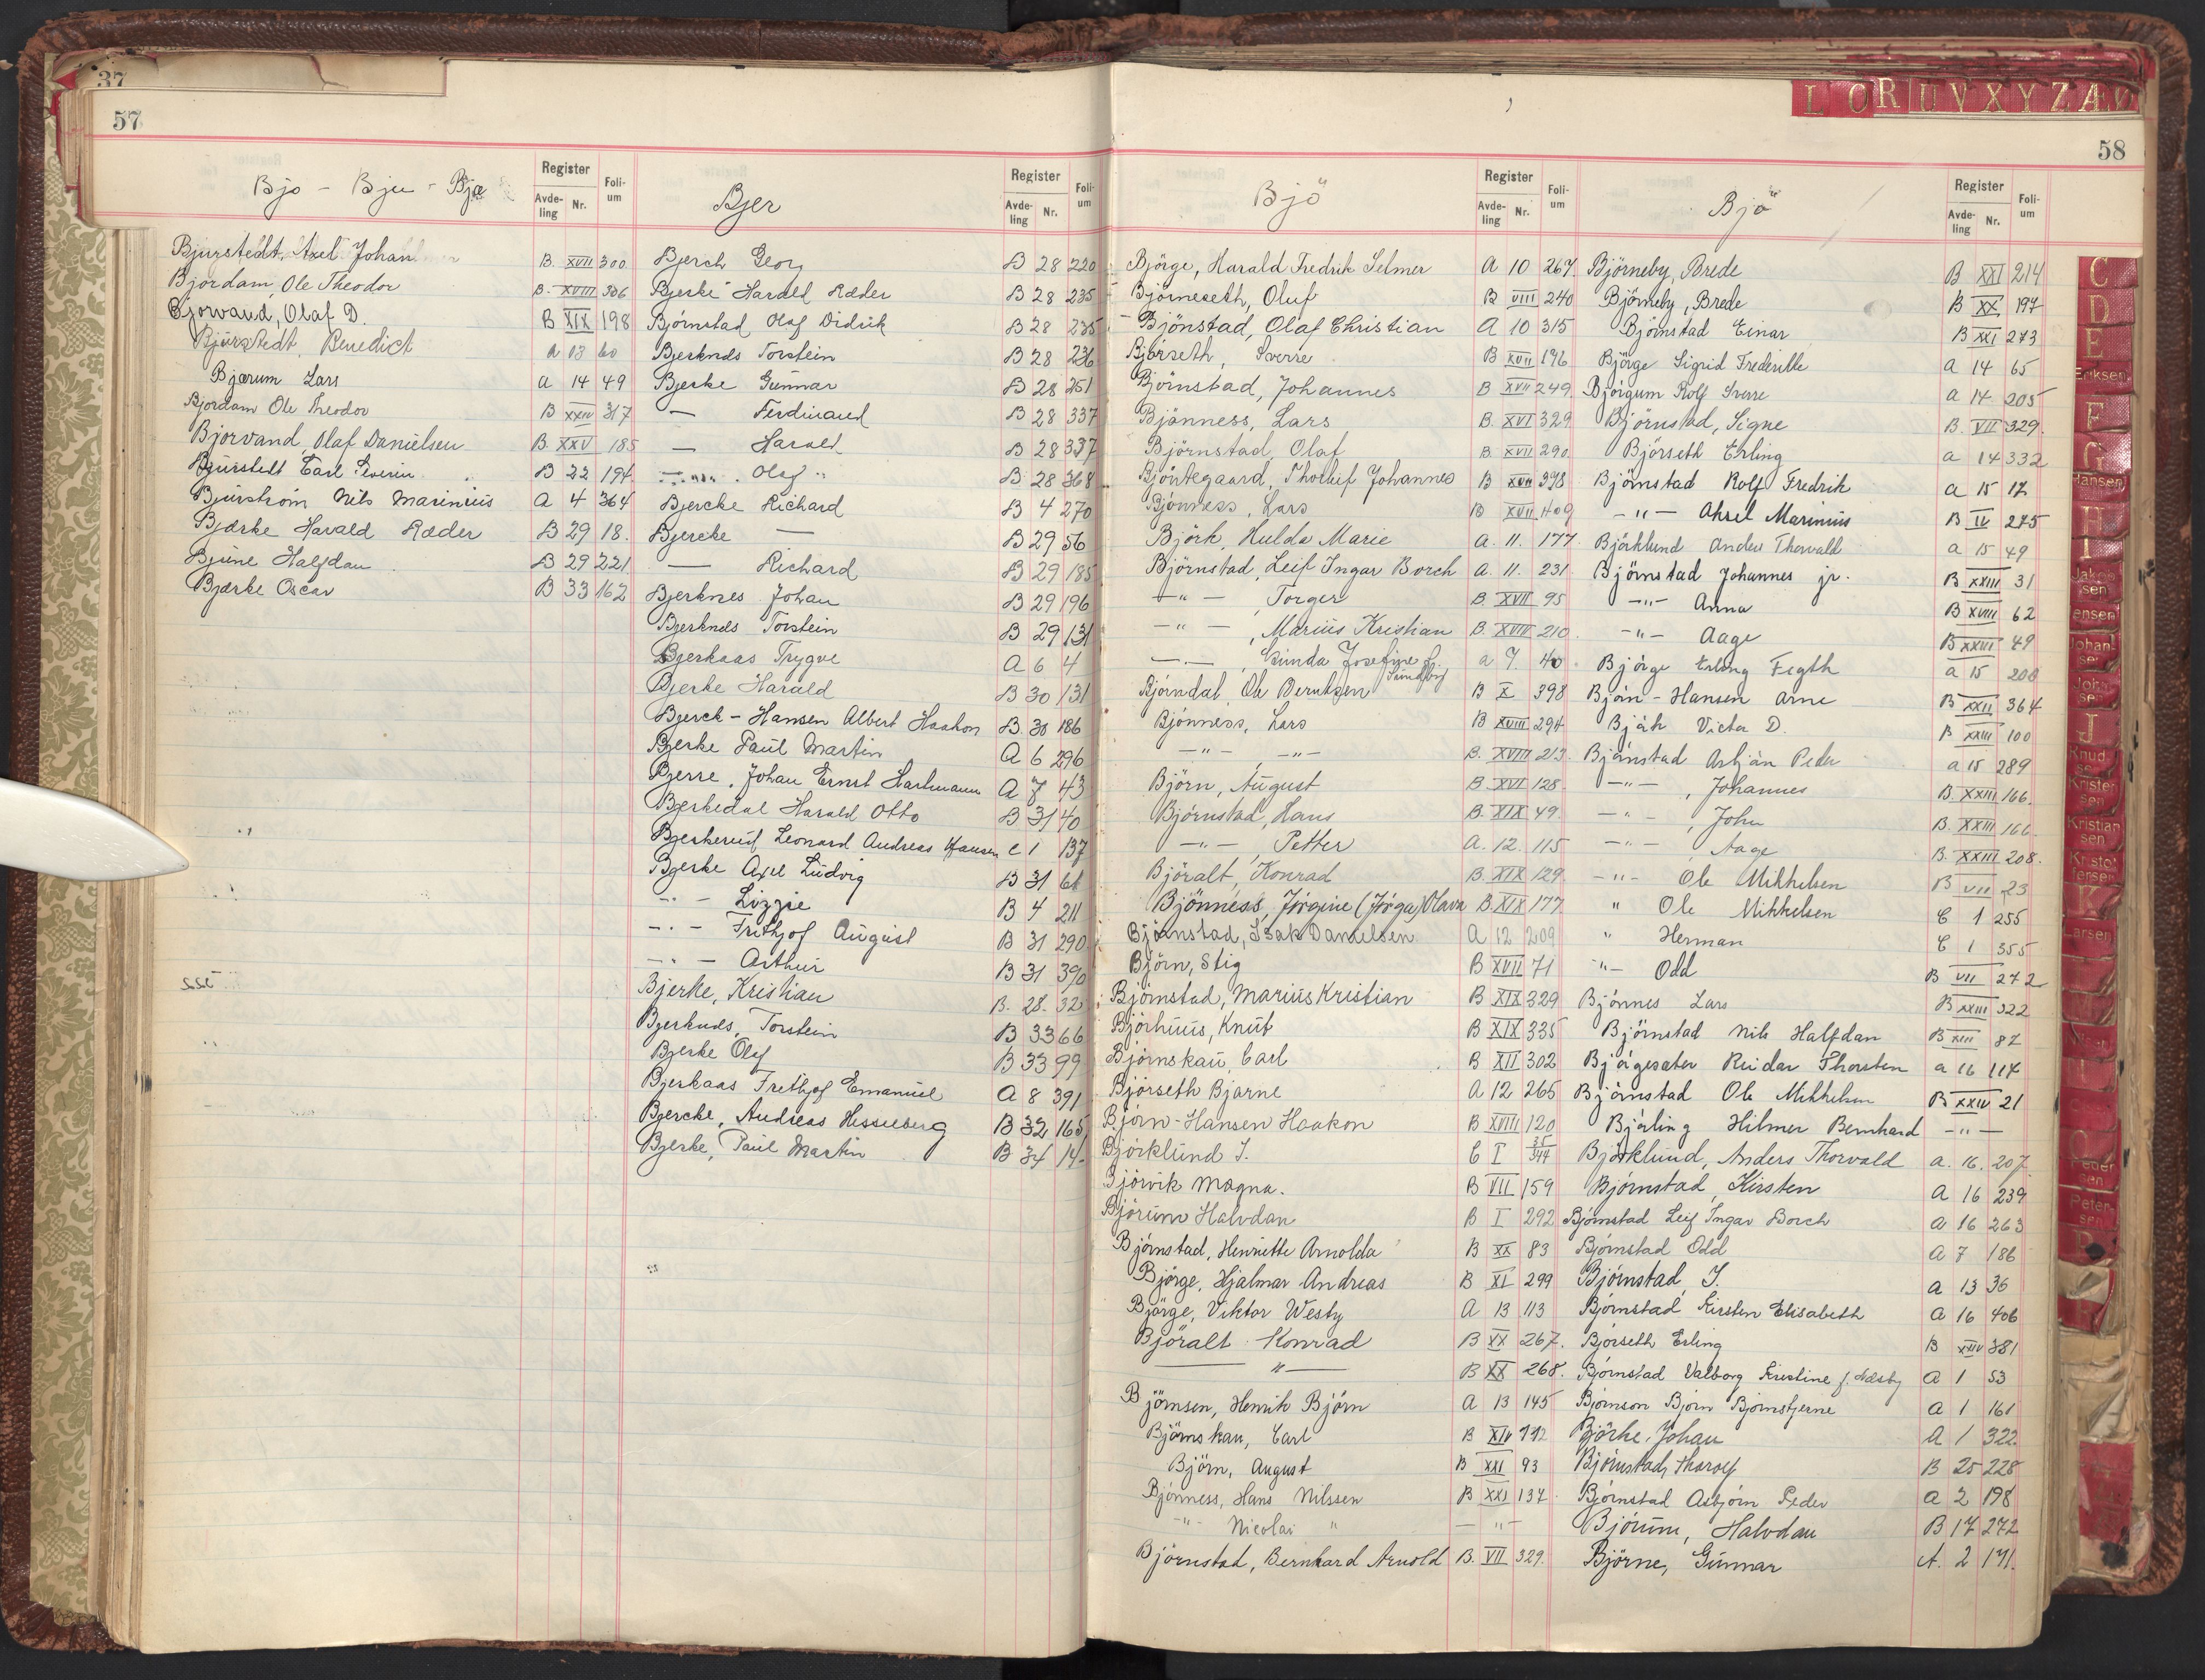 37
57
Bjo - Bju - Bjæ
Register Avdeling Nr. Folium
Bjurstedt, Axel Johan B. XVII 300
Bjordam, Ole Theodor B. XVIII 306
Bjorvand, Olaf D. B XIX 198
Bjurstedt, Benedict A 13 60
Bjærum Lars A 14 49
Bjordam Ole Theodor B XXIV 317
Bjorvand, Olaf Danielsen B. XXV 185
Bjurstedt Carl Severin B 22 194
Bjurstrøm Nils Marinius A 4 364
Bjærke Harald Ræder B 29 18.
Bjune Halfdan B 29 221
Bjærke Oscar B 33 162
Bjer
Register Avdeling Nr. Folium
Bjerch Georg B 28 220
Bjerke Harald Ræder B 28 235
Bjørnstad Olaf Didrik B 28 235
Bjerknds Torstein B 28 236
Bjerke Gunnar B 28 251
— Ferdinand B 28 337
— Harald B 28 337
— Olaf B 28 368
Bjercke Richard B 4 270
Bjercke — B 29 56
— Richard B 29 185
Bjerknes Johan B 29 196
Bjerknds Torstein B 29 131
Bjerkaas Trygve A 6 4
Bjerke Harald B 30 131
Bjerck - Hansen Albert Haakon B. 30 186
Bjerke Paul Martin A 6 296
Bjerre, Johan Ernst Hartmann A 7 43
Bjerkedal Harald Otto B 31 40
Bjerkerud Leonard Andreas Hansen C 1 137
Bjerke Axel Ludvig B 31 61
-"- Lizzie B 4 211
-"- Frithjof August B 31 290
-"- Arthur B 31 390
Bjerke, Kristian B. 28. 32
Bjerknds, Torstein B 33 66
Bjerke Olaf B 33 99
Bjerkaas Frethjof Emanuel A 8 391
Bjercke, Andreas Hesselberg B 32 165
Bjerke, Paul Martin B 34 14
L O R U V X Y Z Æ Ø
58
Bjö
Register Avdeling Nr. Folium
Björge, Harald Fredrik Selmer A 10 267.
Björneseth, Oluf B VIII 240
Bjönstad, Olaf Christian A 10 315
Björseth, Sverre B XVII 196
Björnstad, Johannes B XVII 249
Bjönness, Lars B. XVI 329
Björnstad, Olaf B XVII 290
Bjöntegaard, Thorleif Johannes B XVII 398
Bjönness, Lars B XVII 409
Björk, Hulda Marie A. 11. 177
Björnstad, Leif Ingar Borch A. 11. 231
-"-, Torger B. XVII 95
-"-, Marius Kristian B. XVIII 210
-"-, Gunda Josefine A 9. 40
Björndal, Ole Berntzen B X 398
Bjönness, Lars B XVIII 294
-"- -"- B. XVIII 213
Björn, August B XVI 128
Björnstad, Hans B. XIX 49
-"-, Petter A. 12. 115
Björalt, Konrad B. XIX 129
Bjönness, Jörgine (Jörga) Olava B. XIX 177
Björnstad, Isak Danielsen A 12 209
Björn, Stig B XVII 71
Björnstad, Marius Kristian B XIX 329
Björhuus, Knut B XIX 335
Björnskau, Carl B XII 302
Björseth Bjarne A 12 265
Björn-Hansen Haakon B XVIII 120
Björklund J. C I 35/344
Björvik Magna. B VII 159
Björum Halvdan B I 292
Björnstad, Henriette Arnolda B XX 83
Björge, Hjalmar Andreas B XI 299
Björge, Viktor Westy A 13 113
Björalt Konrad B XX 267.
— " — B XX 268.
Björnsen, Henrik Björn A 13 145
Björnskau, Carl B XIV 112
Björn, August B XXI 93
Bjönness, Hans Nilssen B XXI 137
-"- Nicolai " — " —
Björnstad, Bernhard Arnold B. VII 329.
Bjö
Register Avdeling Nr. Folium
Björneby, Brede B XXI 214
Björneby, Brede B XX 197
Björnstad Einar B XXI 273
Björge Sigrid Frederikke A 14 65
Björgum Rolf Sverre A 14 205
Björnstad, Signe B. VII 329.
Björseth Erling A 14 332
Björnstad Rolf Fredrik A 15 17
-"- Aksel Marinius B IV 275
Björklund Anders Thorvald A 15 49
Björnstad Johannes jr. B XXIII 31
-"- Anna B XVIII 62
-"- Aage B XXIII 49
Björge Erling Fegth A 15 200
Björn-Hansen Arne B XXII 364
Björk Victor D. B XXIII 100
Björnstad Asbjörn Peder A 15 289
-"-, Johannes B. XXIII 166.
-"-, John B. XXIII 166
-"-, Aage B. XXIII 208.
-"- Ole Mikkelsen B VII 23
" Ole Mikkelsen C 1 255
" Herman C 1 355
"- Odd B VII 272
Bjönnes Lars B XXIII 322
Björnstad Nils Halfdan B XIII 87
Björgesæter Reidar Thorsten A 16 117
Björnstad Ole Mikkelsen B XXIV 21
Björling Hilmer Bernhard -"-
Björklund, Anders Thorvald A. 16. 207.
Björnstad, Kirsten A 16 239
Björnstad Leif Ingar Borch A 16 263
Björnstad Odd A 7 186
Björnstad, J. A 13 36
Björnstad Kirsten Elisabeth A 16 406
Björseth Erling B XIV 381
Björnstad Valborg Kristine f. Næsby A 1 53
Björnson Björn Björnstjerne A 1 161
Björke, Johan A 1 322
Björnstad, Thorolf B 25 228
Björnstad Asbjörn Peder A 2 198
Björum, Halvdan B 17 272
Björne, Gunnar A. 2 171.
C
D
E
Eriksen
F
G
Hansen
H
I
Jakobsen
Jensen
Johansen
J
Knudsen
Kristensen
Kristiansen
Kristoffersen
K
Larsen
L
Pedersen
Petersen